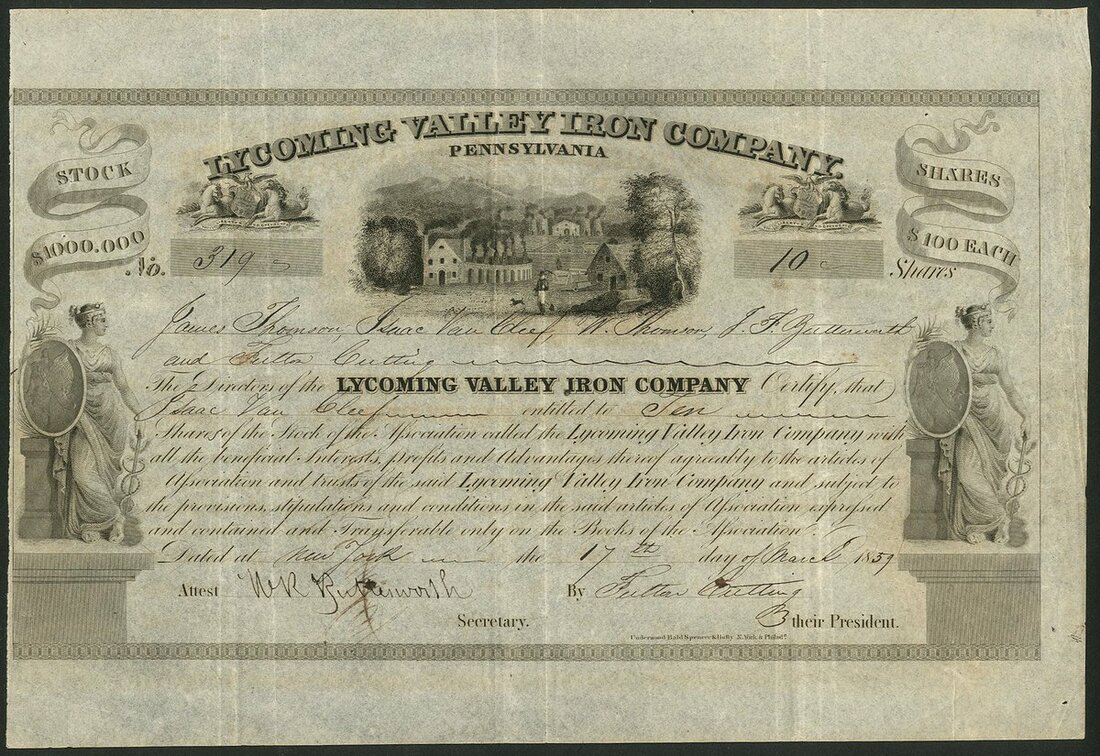 LYCOMING VALLEY IRON COMPANY.
PENNSYLVANIA
STOCK
$1000.000
SHARES
$100 EACH
No. 319
10 Shares
James Thomson, Isaac Van Cleef, W. Thomson, J. F. Butterworth
and Fulton Cutting
The Directors of the LYCOMING VALLEY IRON COMPANY Certify, that
Isaac Van Cleef entitled to Ten
Shares of the Stock of the Association called the Lycoming Valley Iron Company with
all the beneficial Interests, profits and Advantages thereof agreeably to the articles of
Association and trusts of the said Lycoming Valley Iron Company and subject to
the provisions, stipulations and conditions in the said articles of Association expressed
and contained and Transferable only on the Books of the Association.
Dated at New York the 17th day of March
Attest Butterworth By Fulton Cutting
Secretary. their President.
Underwood Bald Spencer & Hufty N. York & Philada.